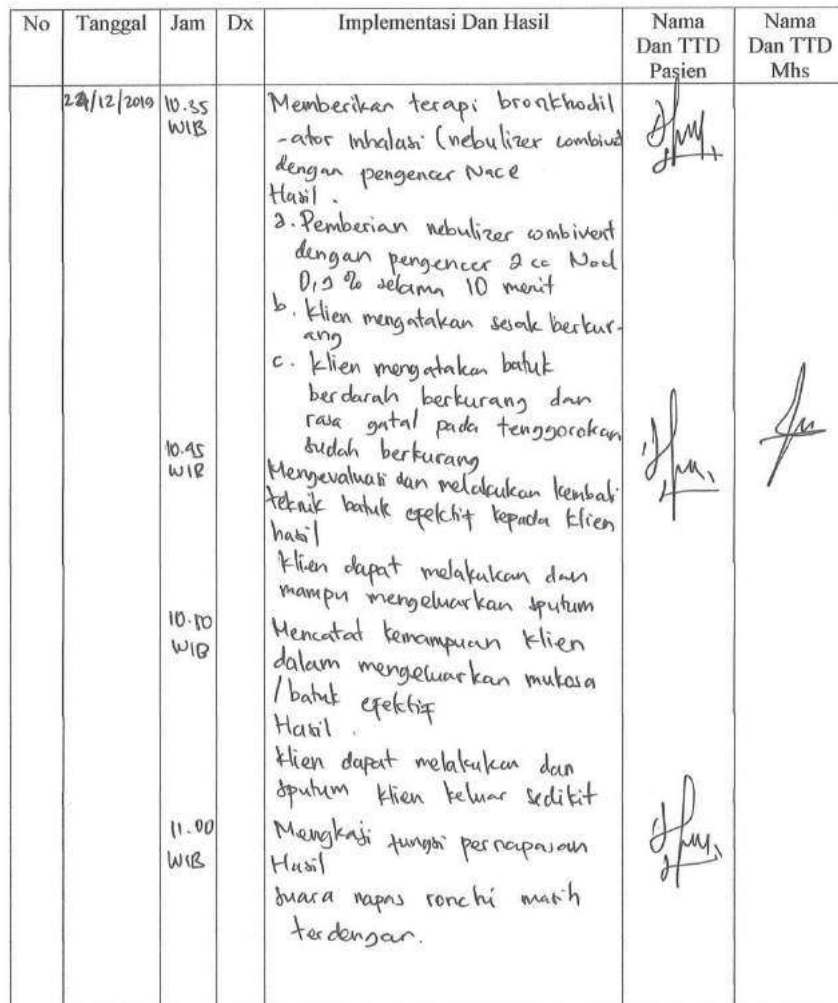 No Tanggal Jam Dx Implementasi Dan Hasil Nama Dan TTD Pasien Nama Dan TTD Mhs
/12/2019 10.35 WIB Memberikan terapi bronkhodil
-ator inhalasi (nebulizer combivet
dengan pengencer Nacl
Hasil .
a. Pemberian nebulizer combivent
dengan pengencer 2 cc Nacl
0,9 % selama 10 menit
b. Klien mengatakan sesak berkur-
ang
c. Klien mengatakan batuk
berdarah berkurang dan
rasa gatal pada tenggorokan
sudah berkurang
10.45 WIB Mengevaluasi dan melakukan kembali
teknik batuk efektif kepada klien
hasil
Klien dapat melakukan dan
mampu mengeluarkan sputum
10.50 WIB Mencatat kemampuan klien
dalam mengeluarkan mukosa
/batuk efektif
Hasil .
Klien dapat melakukan dan
sputum klien keluar sedikit
11.00 WIB Mengkaji fungsi pernapasan
Hasil
suara napas ronchi masih
terdengar.